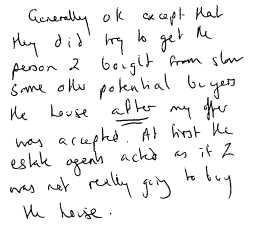 Generally ok except that
they did try to get the
person I bought from show
some other potential buyers
the house after my offer
was accepted. At first the
estate agents acted as if I
was not really going to buy
the house.